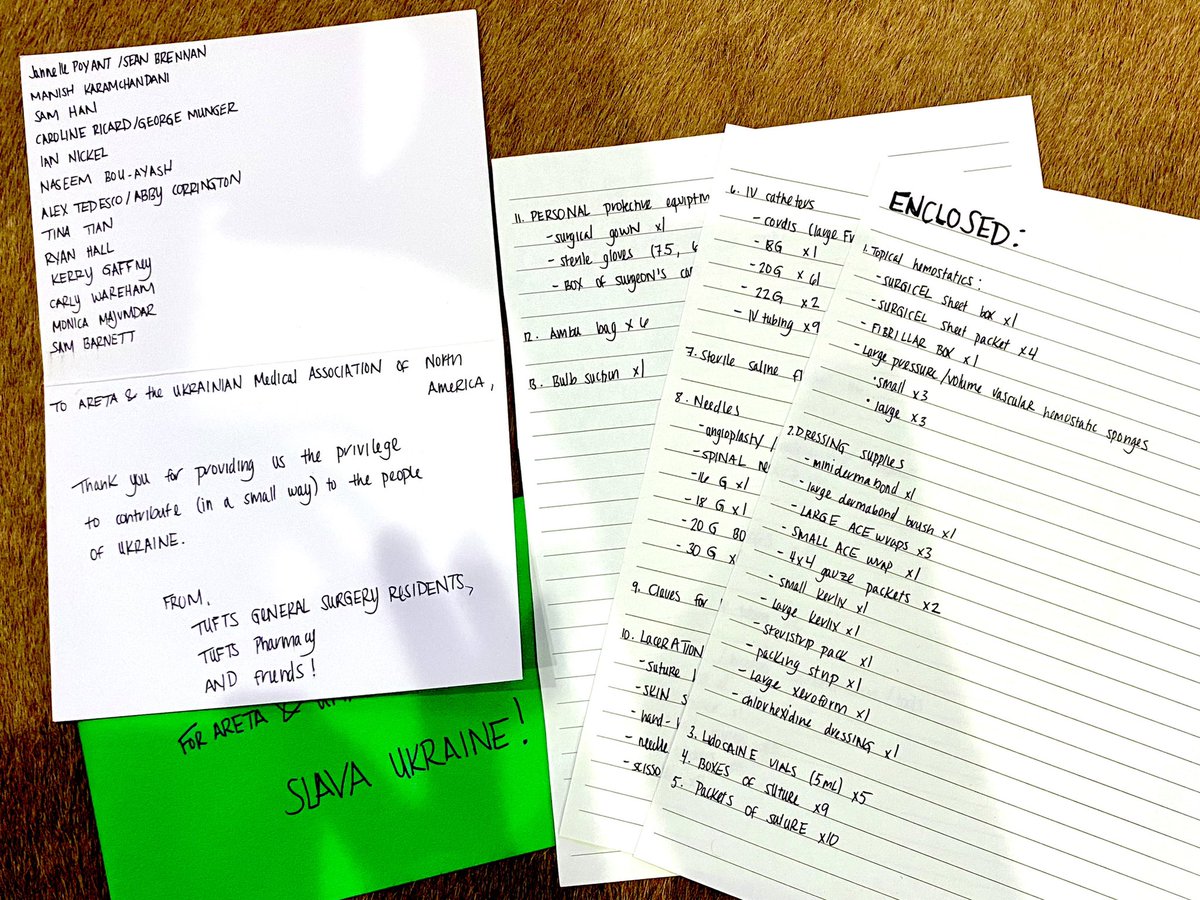 Jannelle POYANT / SEAN BRENNAN
MANISH KARAMCHANDANI
SAM HAN
CAROLINE RICARD / GEORGE MUNGER
IAN NICKEL
NASEEM BOU-AYASH
ALEX TEDESCO / ABBY CORRINGTON
TINA TIAN
RYAN HALL
KERRY GAFFNEY
CARLY WAREHAM
MONICA MAJUMDAR
SAM BARNETT
TO ARETA & the UKRAINIAN Medical ASSOCIATION OF North
AMERICA,
Thank you for providing us the privilege
to contribute (in a small way) to the people
of UKRAINE.
FROM,
TUFTS GENERAL SURGERY RESIDENTS,
TUFTS Pharmacy
AND friends!
FOR ARETA &
SLAVA UKRAINE!
11. PERSONAL protective equiptm
- surgical gown x1
- sterile gloves (7.5,
- BOX OF surgeon's
12. Ambu bag x 6
13. Bulb suction x1
6. IV catheters
- cordis (large
- 8G x1
- 20G x 61
- 22G x2
- IV tubing x9
7. Sterile saline
8. Needles
- angioplasty /
- SPINAL
- 16 G x1
- 18 G x1
- 20 G
- 30 G x
9. Claves for
10. LACERATION
- suture
- SKIN
- hand-
- needle
- scisso
ENCLOSED:
1. Topical hemostatics:
- SURGICEL sheet box x1
- SURGICEL sheet packet x4
- FIBRILLAR BOX x1
- Large pressure/volume vascular hemostatic sponges
• small x3
• large x3
2. DRESSING supplies
- minidermabond x1
- large dermabond brush x1
- LARGE ACE wraps x3
- SMALL ACE wrap x1
- 4x4 gauze packets x2
- small kerlix x1
- large kerlix x1
- steristrip pack x1
- packing strip x1
- large xeroform x1
- chlorhexidine dressing x1
3. LIDOCAINE VIALS (5mL) x5
4. BOXES OF suture x9
5. Packets of SUTURE x10